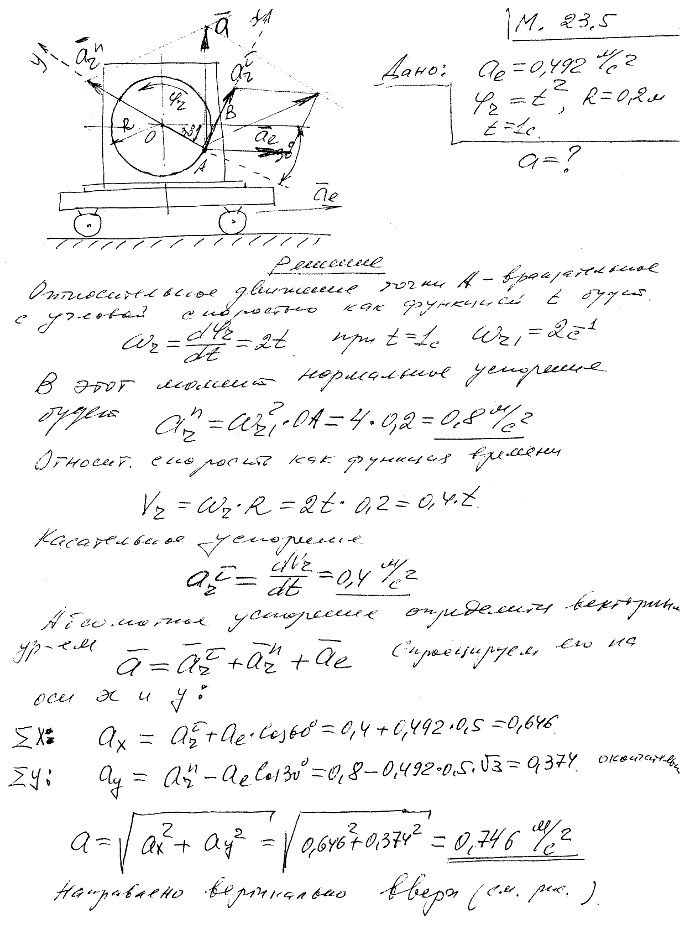 М. 23.5
Дано: aₑ = 0,492 м/с²
φᵣ = t², R = 0,2 м
t = 1с
a = ?
y
āᵣⁿ
ā
x
āᵣᵗ
φᵣ
R
B
O
30°
āₑ
30°
A
āₑ
Решение
Относительное движение точки А – вращательное
с угловой скоростью как функцией t будет.
ωᵣ = dφᵣ/dt = 2t. при t = 1с ωᵣ₁ = 2с⁻¹
В этот момент нормальное ускорение
будет aᵣⁿ = ωᵣ₁² · OA = 4 · 0,2 = 0,8 м/с²
Относит. скорость как функция времени
Vᵣ = ωᵣ · R = 2t · 0,2 = 0,4 · t.
Касательное ускорение
aᵣᵗ = dVᵣ/dt = 0,4 м/с²
Абсолютное ускорение определить векторным
ур-ем ā = āᵣᵗ + āᵣⁿ + āₑ Спроецируем его на
оси x и y:
ΣX: aₓ = aᵣᵗ + aₑ · cos60° = 0,4 + 0,492 · 0,5 = 0,646.
Σy: a_y = aᵣⁿ – aₑ cos30° = 0,8 – 0,492 · 0,5 · √3 = 0,374. окончательно
a = √(aₓ² + a_y²) = √(0,646² + 0,374²) = 0,746 м/с²
Направлено вертикально вверх (см. рис.).